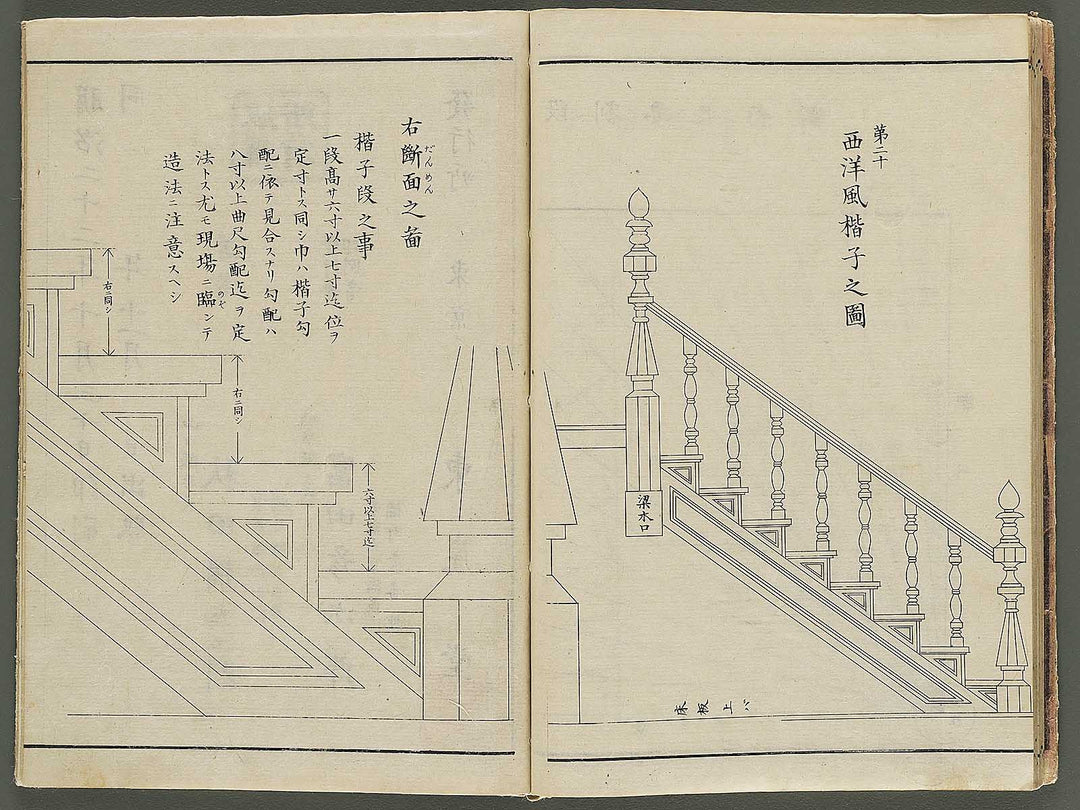 第二十
西洋風楷子之圖
梁木口
床板上バ
右斷面之啚
だんめん
楷子段之事
一段高サ六寸以上七寸迄位ヲ
定寸トス同シ巾ハ楷子勾
配ニ依テ見合スナリ勾配ハ
八寸以上曲尺勾配迄ヲ定
法トス尤モ現場ニ臨ンテ
のぞ
造法ニ注意スヘシ
六寸以上七寸迄
右ニ同シ
右ニ同シ